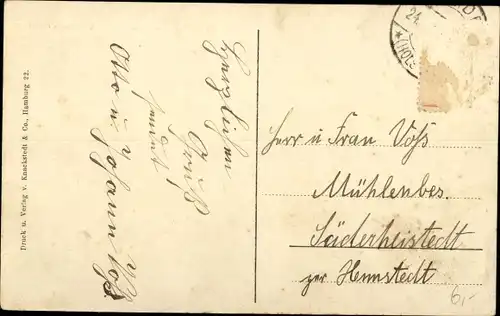 Druck u. Verlag v. Knackstedt & Co., Hamburg 22.
Herzlichen
Gruß
sendet
Otto u. Johann Voß
24.
(HOLST)
Herr u Frau Voß
Mühlenbes.
Süderheistedt
zur Hennstedt
6,-